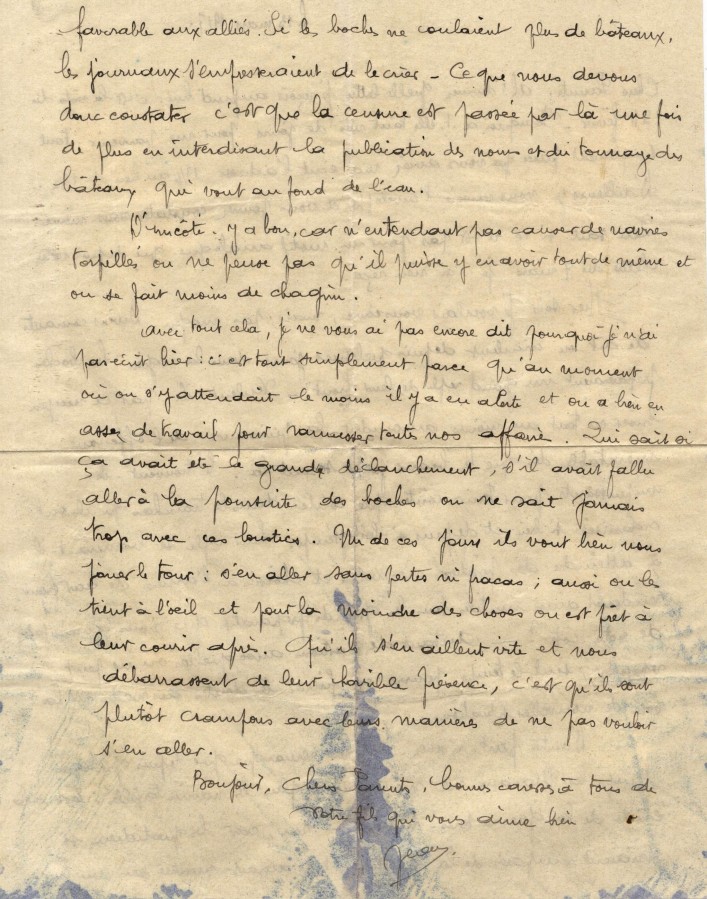 favorable aux alliés. Si les boches ne coulaient plus de bâteaux,
les journaux s'empresseraient de le crier - Ce que nous devons
donc constater c'est que la censure est passée par là une fois
de plus en interdisant la publication des noms et du tonnage des
bâteaux qui vont au fond de l'eau.
D'un côté. y a bon, car n'entendant pas causer de navires
torpillés on ne pense pas qu'il puisse y en avoir tout de même et
on se fait moins de chagrin.
avec tout cela, je ne vous ai pas encore dit pourquoi je n'ai
pas écrit hier : c'est tout simplement parce qu'au moment
où on s'y attendait le moins il y a eu alerte et on a bien eu
assez de travail pour ramasser toutes nos affaires. Qui sait si
ça avait été le grand déclanchement, s'il avait fallu
aller à la poursuite des boches on ne sait jamais
trop avec ces loustics. Un de ces jours ils vont bien nous
jouer le tour : s'en aller sans pertes ni fracas ; aussi on les
tient à l'oeil et pour la moindre des choses on est prêt à
leur courir après. Qu'ils s'en aillent vite et nous
débarrassent de leur horrible présence, c'est qu'ils sont
plutôt crampons avec leurs manières de ne pas vouloir
s'en aller.
Bonjour, Chers Parents, bonnes caresses à tous de
votre fils qui vous aime bien
Jean.